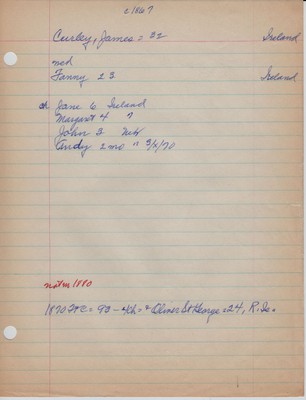 c1867
Curley, James = 32 Ireland
md
Fanny 23 Ireland
ch Jane 6 Ireland
Margaret 4 "
John 2
Andy 2 mo " 3/4/70
not in 1880
1870 FC = 90 - 4th = & Oliver St George = 24, R. Is.